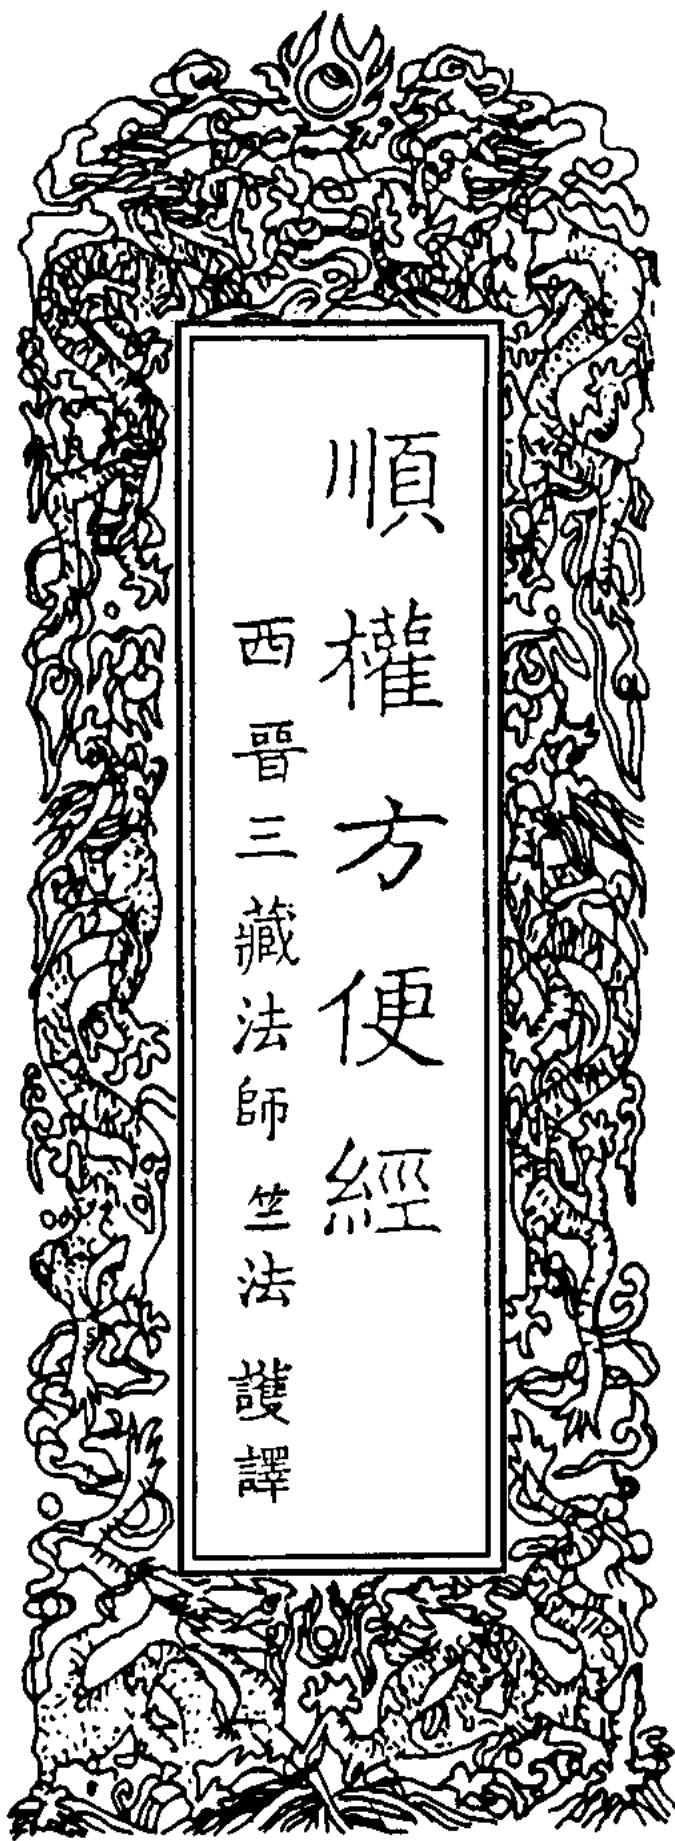 順權方便經
西晉三藏法師竺法護譯